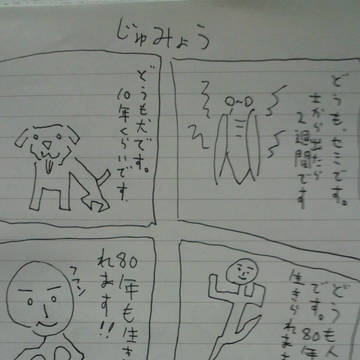 じゅみょう
どうも、セミです。
土から出たら
2週間です
どうも犬です。
10年くらいです
どうも人
です。80年
生きられま
80年も生き
れます!!
フフン